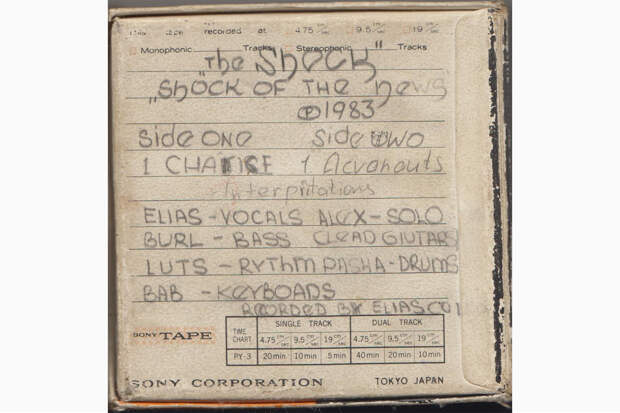 recorded at 4.75 9.5 19
Monophonic Tracks Stereophonic Tracks
"The ShOCK"
„ShOCK OF The news
Ⓟ1983
Side ONE Side TWO
1 CHANSE 1 Acvanauts
Interpritations
ELIAS - VOCALS ALEX - SOLO
BURL - BASS CLEAD GIUTARS
LUTS - RYThM PASHA - DRUMS
BAB - KEYBOADS
RECORDED BY ELIAS CO
SONY TAPE
TIME CHART SINGLE TRACK DUAL TRACK
4.75 cm/sec 9.5 cm/sec 19 cm/sec 4.75 cm/sec 9.5 cm/sec 19 cm/sec
PY-3 20min 10min 5min 40min 20min 10min
SONY CORPORATION TOKYO JAPAN